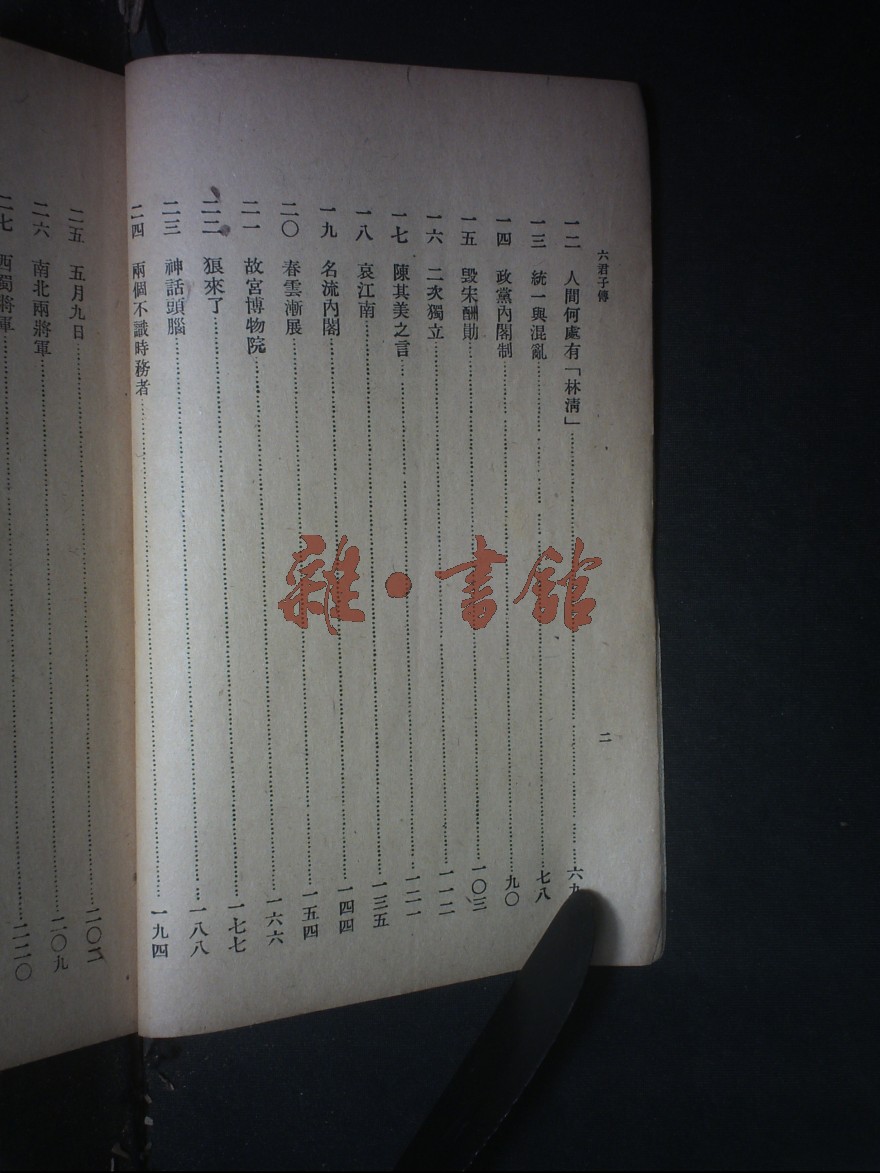 六君子傳
一二 人間何處有「林清」 六九
一三 統一與混亂 七八
一四 政黨內閣制 九〇
一五 毀宋酬勛 一〇三
一六 二次獨立 一一二
一七 陳其美之言 一二一
一八 哀江南 一三五
一九 名流內閣 一四四
二〇 春雲漸展 一五四
二一 故宮博物院 一六六
二二 狼來了 一七七
二三 神話頭腦 一八八
二四 兩個不識時務者 一九四
二
二五 五月九日 二〇二
二六 南北兩將軍 二〇九
二七 西蜀將軍 二二〇
雜·書館